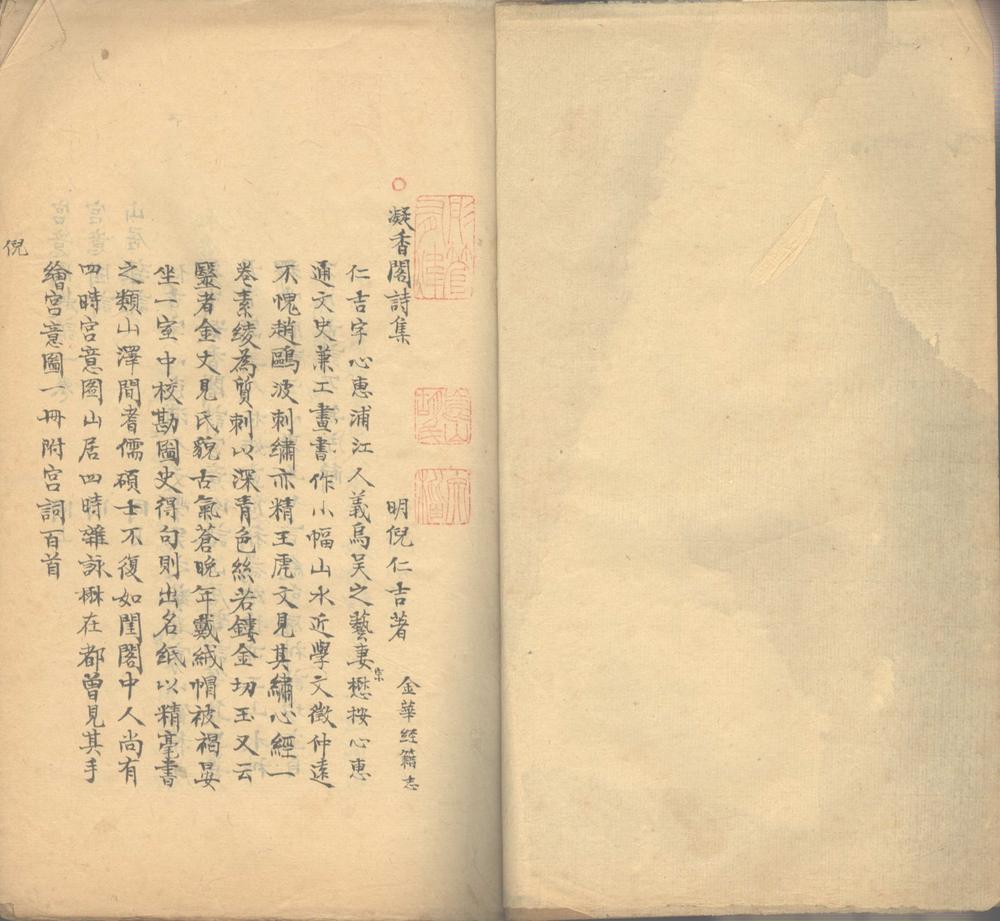 凝香閣詩集
明倪仁吉著
金華經籍志
仁吉字心惠浦江人義烏吳之藝妻懋按心惠
宗
通文史兼工畫書作小幅山水近學文徵仲遠
不愧趙鷗波刺繡亦精王虎文見其繡心經一
卷素綾為質刺以深青色絲若鏤金切玉又云
翳者金丈見氏貌古氣蒼晚年戴絨帽被褐晏
坐一室中校勘圖史得句則出名紙以精毫書
之類山澤間耆儒碩士不復如閨閣中人尚有
四時宮意圖山居四時雜詠楙在都曾見其手
繪宮意圖一冊附宮詞百首
倪